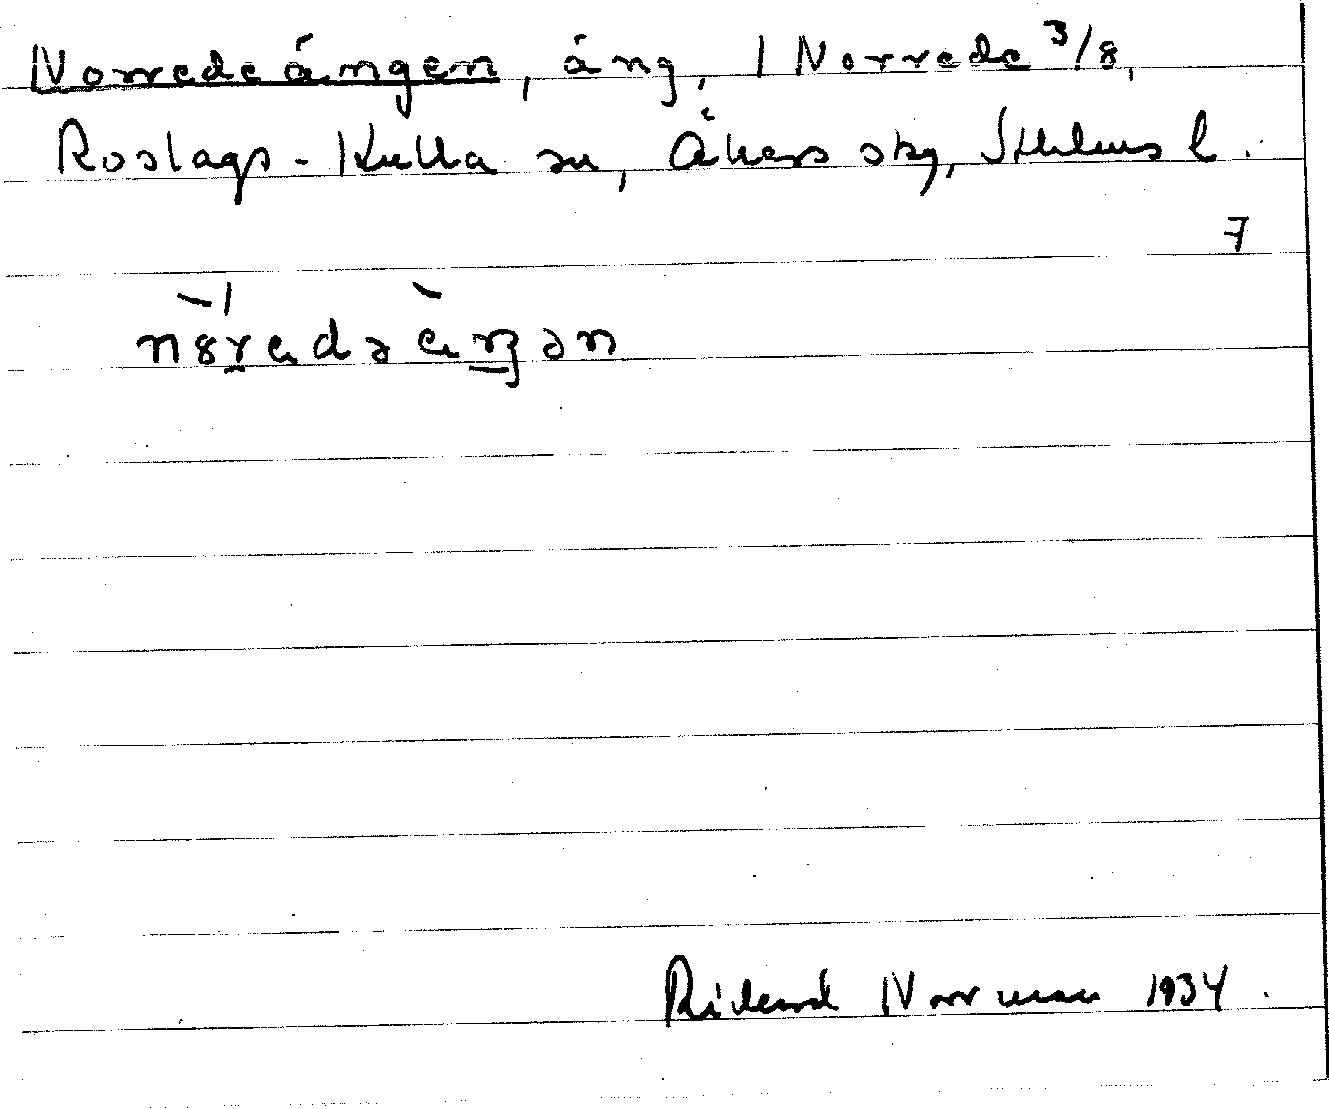 Norredeängen, äng, 1 Norrede 3/8,
Roslags-Kulla sn, Åkers skg, Sthlms l.
7
Rickard Norrman 1934.